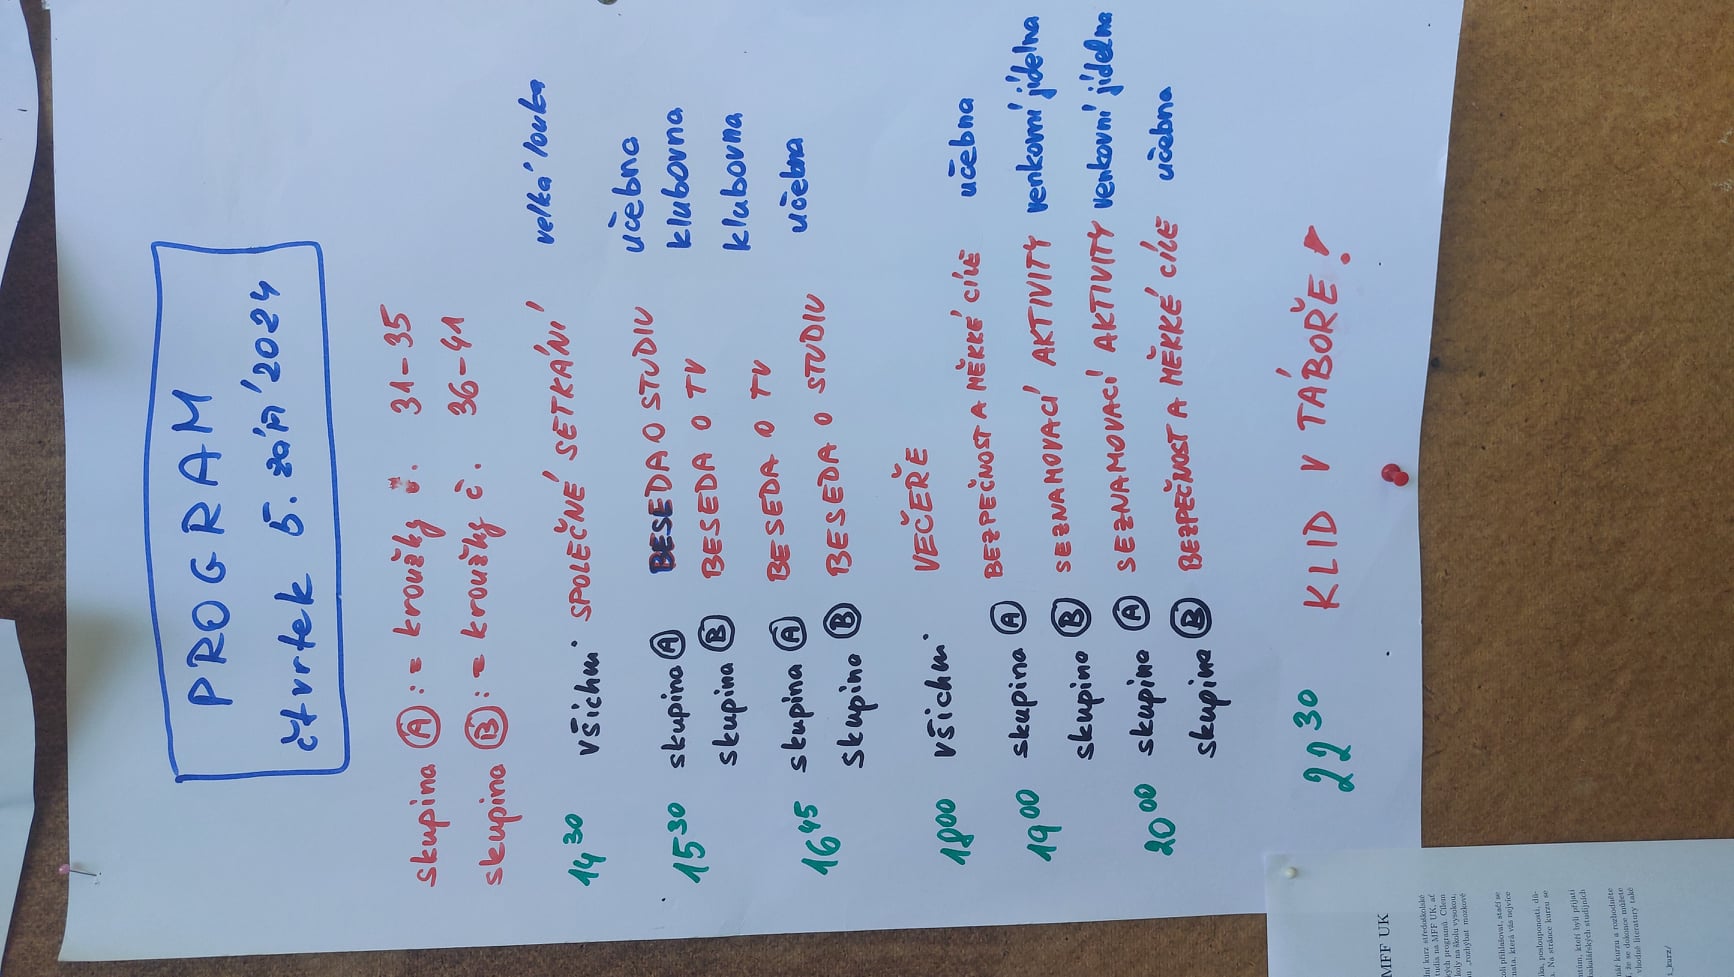 PROGRAM
čtvrtek 5. září 2024
skupina Ⓐ := kroužky č. 31-35
skupina Ⓑ := kroužky č. 36-41
14³⁰ všichni SPOLEČNÉ SETKÁNÍ velká louka
15³⁰ skupina Ⓐ BESEDA O STUDIU učebna
skupina Ⓑ BESEDA O TV klubovna
16⁴⁵ skupina Ⓐ BESEDA O TV klubovna
skupina Ⓑ BESEDA O STUDIU učebna
18⁰⁰ všichni VEČEŘE
19⁰⁰ skupina Ⓐ BEZPEČNOST A MĚKKÉ CÍLE učebna
skupina Ⓑ SEZNAMOVACÍ AKTIVITY venkovní jídelna
20⁰⁰ skupina Ⓐ SEZNAMOVACÍ AKTIVITY venkovní jídelna
skupina Ⓑ BEZPEČNOST A MĚKKÉ CÍLE učebna
22³⁰ KLID V TÁBOŘE!
MFF UK
dní kurz středoškolské
studia na MFF UK, ať
kých programů. Cílem
koly na školu vysokou,
„rozhýbat mozkové
koli přihlašovat, stačí se
která vás nejvíce
posloupnosti, dů-
Na stránce kurzu se
kteří byli přijati
bakalářských studijních
kurzu a rozhodněte
že se dokonce můžete
vhodné literatury také
i_kurz/